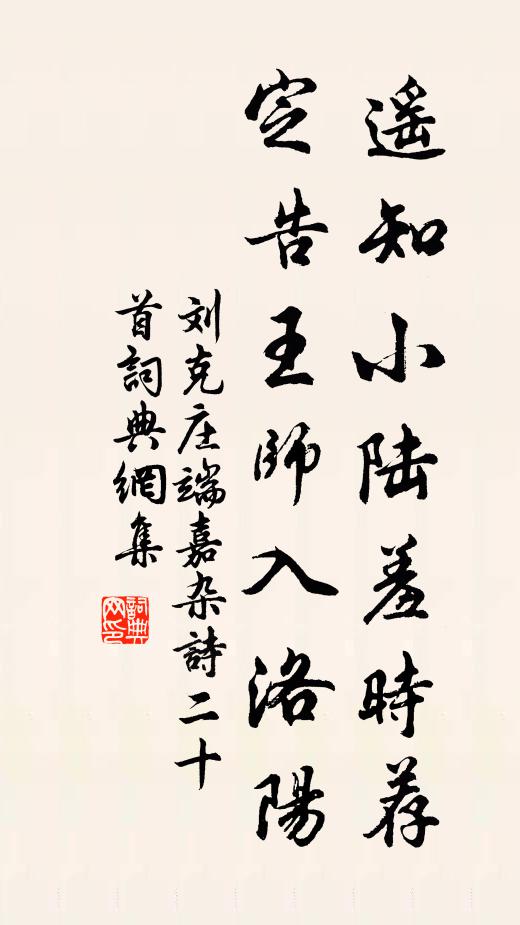 遥知小陆羞時荐
定告王師入洛陽
刘克庄端嘉杂詩二十
首詞典網集
詞典
网印